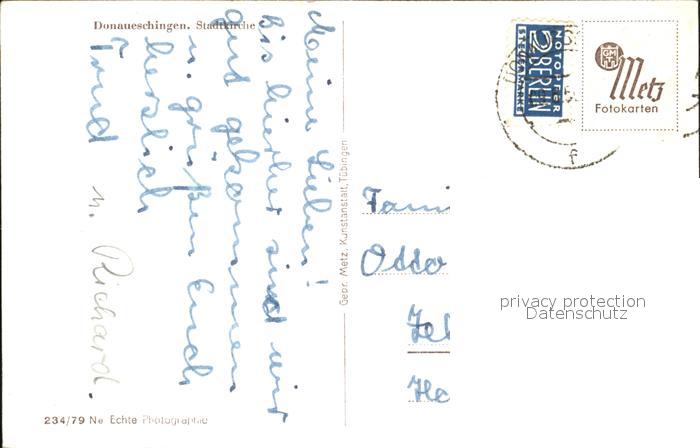 Donaueschingen. Stadtkirche
Meine Lieben!
Bis hierher sind wir
gut gekommen
u. grüßen Euch
herzlich
Trud
u. Richard.
234/79 Ne Echte Photographie
Gebr. Metz, Kunstanstalt, Tübingen
NOTOPFER
2 BERLIN
STEUERMARKE
GMT
Metz
Fotokarten
f
Fami
Otto
Zell
Ha
privacy protection
Datenschutz